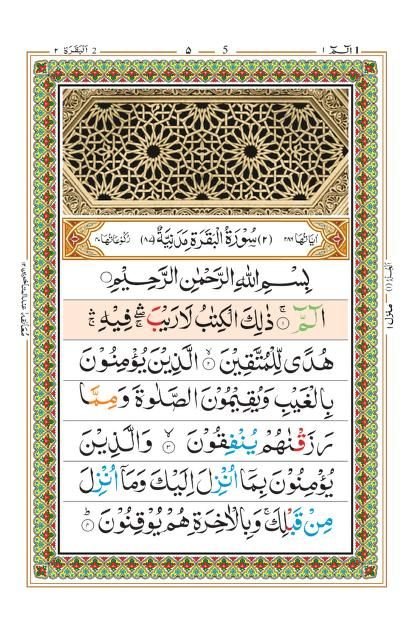 البقرة ٢ 2
5 — ۵
الٓمّٓ ١ 1
اٰیَاتُهَا ۲۸۶ (۲) سُوْرَةُ الْبَقَرَةِ مَدَنِیَّةٌ (۸۷) رُكُوْعَاتُهَا ۴۰
بِسْمِ اللّٰهِ الرَّحْمٰنِ الرَّحِیْمِ
الٓمّٓ ۚ﴿۱﴾ ذٰلِكَ الْكِتٰبُ لَا رَیْبَ ۛۖۚ فِیْهِ ۛۚ
هُدًی لِّلْمُتَّقِیْنَ ۙ﴿۲﴾ الَّذِیْنَ یُؤْمِنُوْنَ
بِالْغَیْبِ وَیُقِیْمُوْنَ الصَّلٰوةَ وَمِمَّا
رَزَقْنٰهُمْ یُنْفِقُوْنَ ۙ﴿۳﴾ وَالَّذِیْنَ
یُؤْمِنُوْنَ بِمَاۤ اُنْزِلَ اِلَیْكَ وَمَاۤ اُنْزِلَ
مِنْ قَبْلِكَ ۚ وَبِالْاٰخِرَةِ هُمْ یُوْقِنُوْنَ ؕ﴿۴﴾
منزل ١